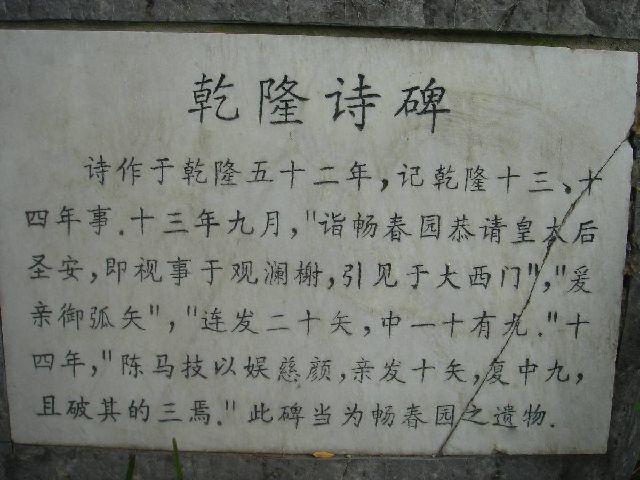 乾隆诗碑
诗作于乾隆五十二年,记乾隆十三、十
四年事.十三年九月,"诣畅春园恭请皇太后
圣安,即视事于观澜榭,引见于大西门","爰
亲御弧矢","连发二十矢,中一十有九."十
四年,"陈马技以娱慈颜,亲发十矢,复中九,
且破其的三焉."此碑当为畅春园之遗物.